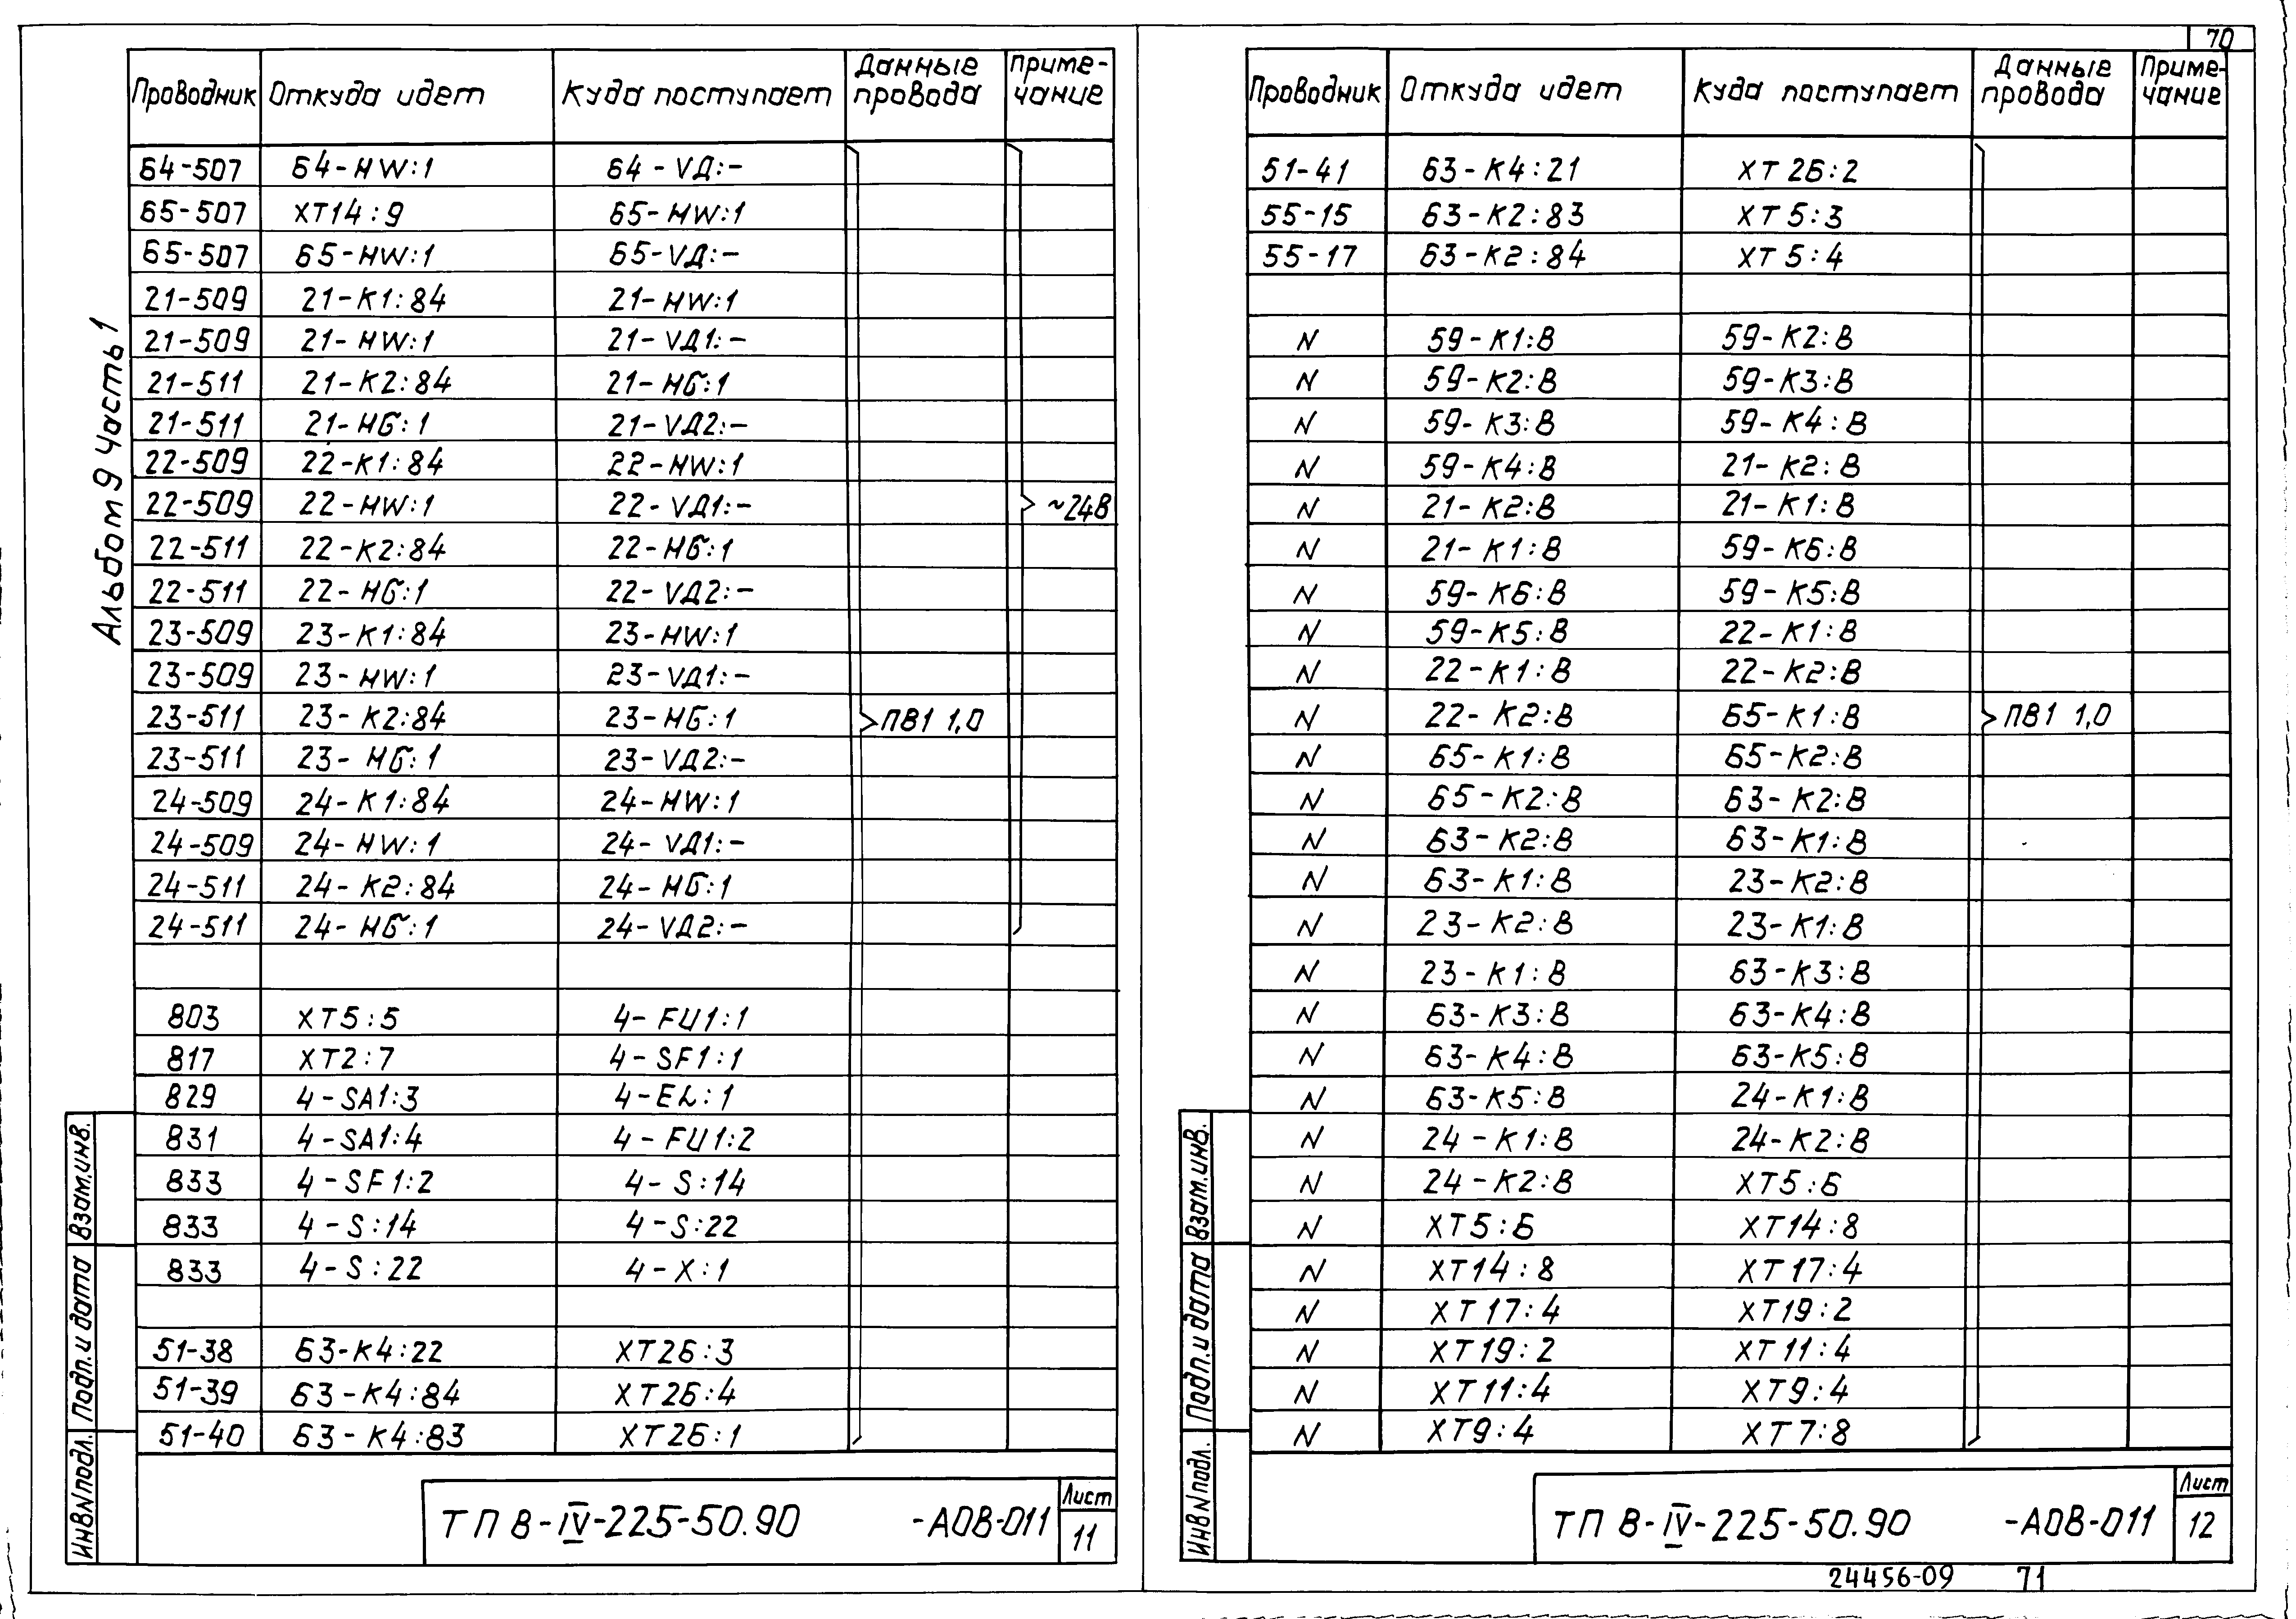 70
Альбом 9 Часть 1
Проводник Откуда идет Куда поступает Данные провода Приме-чание
64-507 64-HW:1 64-VД:-
65-507 XT14:9 65-HW:1
65-507 65-HW:1 65-VД:-
21-509 21-K1:84 21-HW:1
21-509 21-HW:1 21-VД1:-
21-511 21-K2:84 21-HG:1
21-511 21-HG:1 21-VД2:-
22-509 22-K1:84 22-HW:1
22-509 22-HW:1 22-VД1:- ~24В
22-511 22-K2:84 22-HG:1
22-511 22-HG:1 22-VД2:-
23-509 23-K1:84 23-HW:1
23-509 23-HW:1 23-VД1:-
23-511 23-K2:84 23-HG:1 ПВ1 1,0
23-511 23-HG:1 23-VД2:-
24-509 24-K1:84 24-HW:1
24-509 24-HW:1 24-VД1:-
24-511 24-K2:84 24-HG:1
24-511 24-HG:1 24-VД2:-
803 XT5:5 4-FU1:1
817 XT2:7 4-SF1:1
829 4-SA1:3 4-EL:1
831 4-SA1:4 4-FU1:2
833 4-SF1:2 4-S:14
833 4-S:14 4-S:22
833 4-S:22 4-X:1
51-38 63-K4:22 XT26:3
51-39 63-K4:84 XT26:4
51-40 63-K4:83 XT26:1
Взам.инв.
Подп.и дата
ИнвNподл.
ТП В-IV-225-50.90 -АОВ-011
Лист
11
Проводник Откуда идет Куда поступает Данные провода Приме-чание
51-41 63-K4:21 XT26:2
55-15 63-K2:83 XT5:3
55-17 63-K2:84 XT5:4
N 59-K1:B 59-K2:B
N 59-K2:B 59-K3:B
N 59-K3:B 59-K4:B
N 59-K4:B 21-K2:B
N 21-K2:B 21-K1:B
N 21-K1:B 59-K6:B
N 59-K6:B 59-K5:B
N 59-K5:B 22-K1:B
N 22-K1:B 22-K2:B
N 22-K2:B 65-K1:B ПВ1 1,0
N 65-K1:B 65-K2:B
N 65-K2:B 63-K2:B
N 63-K2:B 63-K1:B
N 63-K1:B 23-K2:B
N 23-K2:B 23-K1:B
N 23-K1:B 63-K3:B
N 63-K3:B 63-K4:B
N 63-K4:B 63-K5:B
N 63-K5:B 24-K1:B
N 24-K1:B 24-K2:B
N 24-K2:B XT5:6
N XT5:6 XT14:8
N XT14:8 XT17:4
N XT17:4 XT19:2
N XT19:2 XT11:4
N XT11:4 XT9:4
N XT9:4 XT7:8
Взам.инв.
Подп.и дата
ИнвNподл.
ТП В-IV-225-50.90 -АОВ-011
Лист
12
24456-09 71